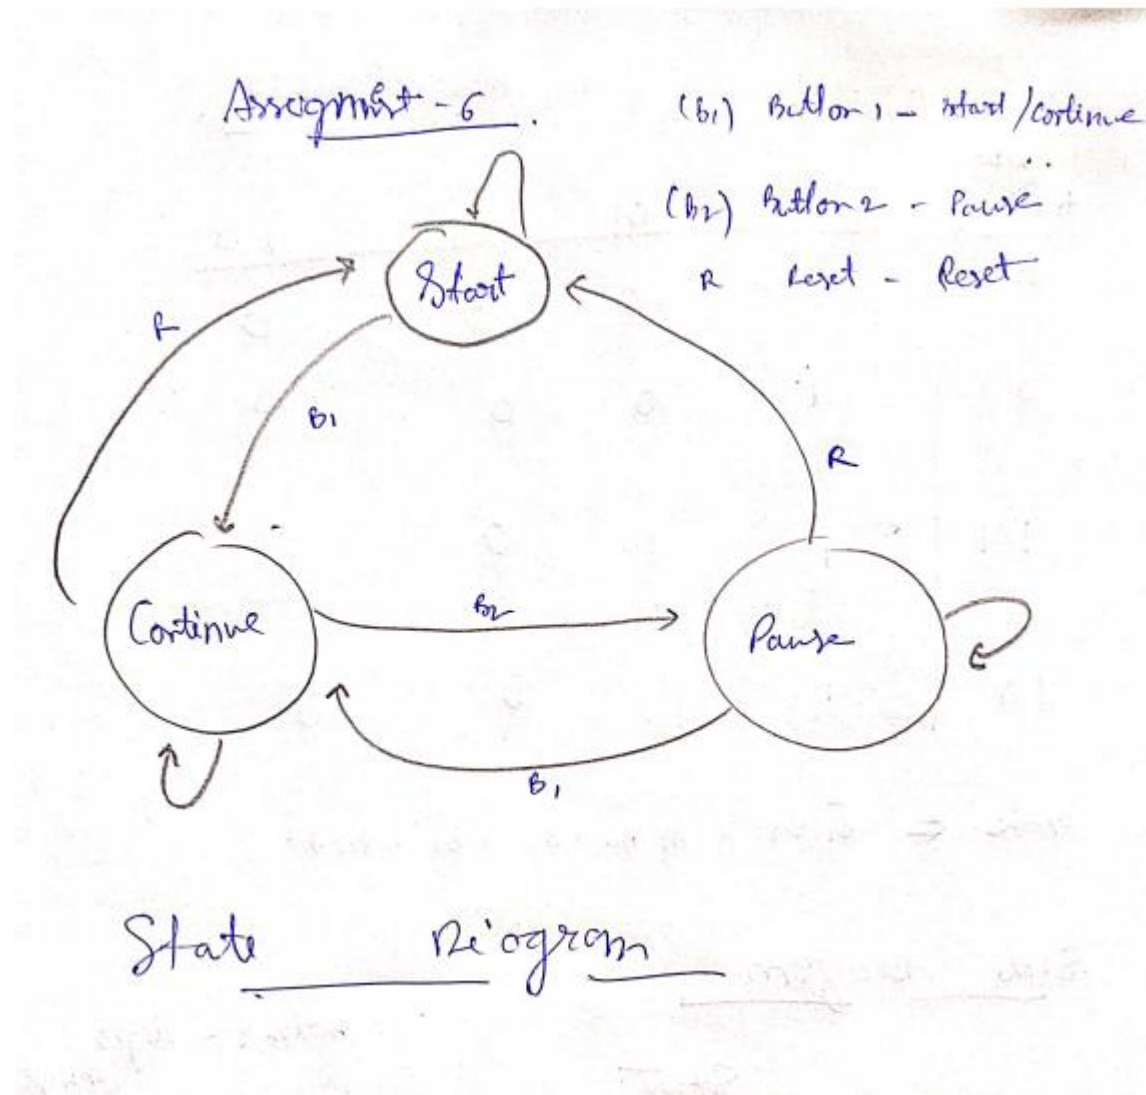 Assignment - 6.
(B1) Button 1 - start/continue
(B2) Button 2 - Pause
R Reset - Reset
Start
R
B1
R
Continue
B2
Pause
B1
State Diagram